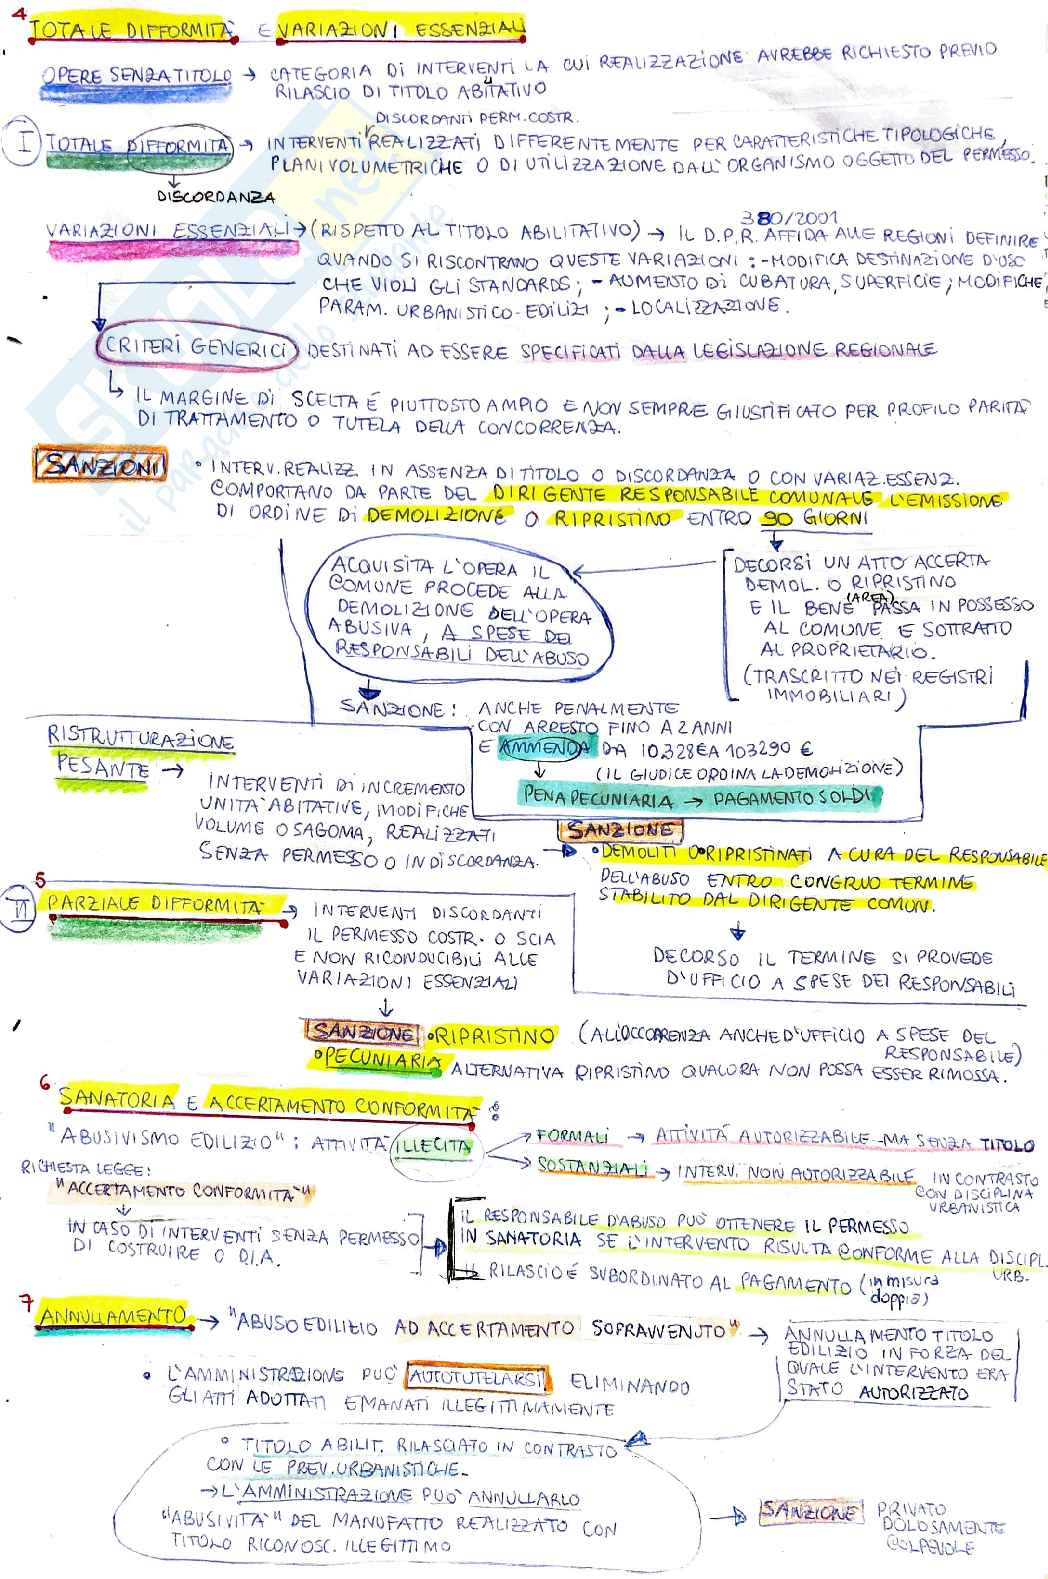 4 TOTALE DIFFORMITÀ E VARIAZIONI ESSENZIALI
OPERE SENZA TITOLO → CATEGORIA DI INTERVENTI LA CUI REALIZZAZIONE AVREBBE RICHIESTO PREVIO
RILASCIO DI TITOLO ABILITATIVO
DISCORDANTI PERM. COSTR.
I TOTALE DIFFORMITÀ → INTERVENTI REALIZZATI DIFFERENTEMENTE PER CARATTERISTICHE TIPOLOGICHE,
PLANIVOLUMETRICHE O DI UTILIZZAZIONE DALL'ORGANISMO OGGETTO DEL PERMESSO.
DISCORDANZA
380/2001
VARIAZIONI ESSENZIALI → (RISPETTO AL TITOLO ABILITATIVO) → IL D.P.R. AFFIDA ALLE REGIONI DEFINIRE
QUANDO SI RISCONTRANO QUESTE VARIAZIONI: - MODIFICA DESTINAZIONE D'USO
CHE VIOLI GLI STANDARDS; - AUMENTO DI CUBATURA, SUPERFICIE; MODIFICHE
PARAM. URBANISTICO-EDILIZI; - LOCALIZZAZIONE.
CRITERI GENERICI DESTINATI AD ESSERE SPECIFICATI DALLA LEGISLAZIONE REGIONALE
↳ IL MARGINE DI SCELTA É PIUTTOSTO AMPIO E NON SEMPRE GIUSTIFICATO PER PROFILO PARITÀ
DI TRATTAMENTO O TUTELA DELLA CONCORRENZA.
SANZIONI • INTERV. REALIZZ IN ASSENZA DI TITOLO O DISCORDANZA O CON VARIAZ. ESSENZ.
COMPORTANO DA PARTE DEL DIRIGENTE RESPONSABILE COMUNALE L'EMISSIONE
DI ORDINE DI DEMOLIZIONE O RIPRISTINO ENTRO 90 GIORNI
DECORSI UN ATTO ACCERTA
DEMOL. O RIPRISTINO
(AREA)
E IL BENE PASSA IN POSSESSO
AL COMUNE E SOTTRATTO
AL PROPRIETARIO.
(TRASCRITTO NEI REGISTRI
IMMOBILIARI)
ACQUISITA L'OPERA IL
COMUNE PROCEDE ALLA
DEMOLIZIONE DELL'OPERA
ABUSIVA, A SPESE DEI
RESPONSABILI DELL'ABUSO
SANZIONE: ANCHE PENALMENTE
CON ARRESTO FINO A 2 ANNI
E AMMENDA DA 10328€ A 103290 €
(IL GIUDICE ORDINA LA DEMOLIZIONE)
PENA PECUNIARIA → PAGAMENTO SOLDI
RISTRUTTURAZIONE
PESANTE →
INTERVENTI DI INCREMENTO
UNITÀ ABITATIVE, MODIFICHE
VOLUME O SAGOMA, REALIZZATI
SENZA PERMESSO O IN DISCORDANZA. →
SANZIONE
• DEMOLITI O RIPRISTINATI A CURA DEL RESPONSABILE
DELL'ABUSO ENTRO CONGRUO TERMINE
STABILITO DAL DIRIGENTE COMUN.
DECORSO IL TERMINE SI PROVEDE
D'UFFICIO A SPESE DEI RESPONSABILI
5
II PARZIALE DIFFORMITÀ → INTERVENTI DISCORDANTI
IL PERMESSO COSTR. O SCIA
E NON RICONDUCIBILI ALLE
VARIAZIONI ESSENZIALI
SANZIONE • RIPRISTINO (ALL'OCCORRENZA ANCHE D'UFFICIO A SPESE DEL
RESPONSABILE)
• PECUNIARIA ALTERNATIVA RIPRISTINO QUALORA NON POSSA ESSER RIMOSSA.
6 SANATORIA E ACCERTAMENTO CONFORMITÀ:
"ABUSIVISMO EDILIZIO": ATTIVITÀ ILLECITA
FORMALI → ATTIVITÀ AUTORIZZABILE MA SENZA TITOLO
SOSTANZIALI → INTERV. NON AUTORIZZABILE IN CONTRASTO
CON DISCIPLINA
URBANISTICA
RICHIESTA LEGGE:
"ACCERTAMENTO CONFORMITÀ"
IN CASO DI INTERVENTI SENZA PERMESSO
DI COSTRUIRE O D.I.A.
IL RESPONSABILE D'ABUSO PUÒ OTTENERE IL PERMESSO
IN SANATORIA SE L'INTERVENTO RISULTA CONFORME ALLA DISCIPL.
URB.
IL RILASCIO É SUBORDINATO AL PAGAMENTO (in misura
doppia)
7 ANNULLAMENTO → "ABUSO EDILIZIO AD ACCERTAMENTO SOPRAVVENUTO" →
ANNULLAMENTO TITOLO
EDILIZIO IN FORZA DEL
QUALE L'INTERVENTO ERA
STATO AUTORIZZATO
• L'AMMINISTRAZIONE PUÒ AUTOTUTELARSI ELIMINANDO
GLI ATTI ADOTTATI EMANATI ILLEGITTIMAMENTE
• TITOLO ABILIT. RILASCIATO IN CONTRASTO
CON LE PREV. URBANISTICHE.
→ L'AMMINISTRAZIONE PUÒ ANNULLARLO
"ABUSIVITÀ" DEL MANUFATTO REALIZZATO CON
TITOLO RICONOSC. ILLEGITTIMO
→ SANZIONE PRIVATO
DOLOSAMENTE
COLPEVOLE